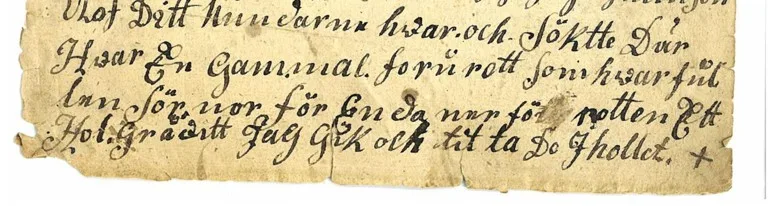 Ulof Ditt hundarne hvar och Söktte Där
Hvar En Gammal forürott Som hvar ful
len Sör nor för En da ner för rotten Ett
Hol Gräditt Jag Gik och tit ta De J hollet. +